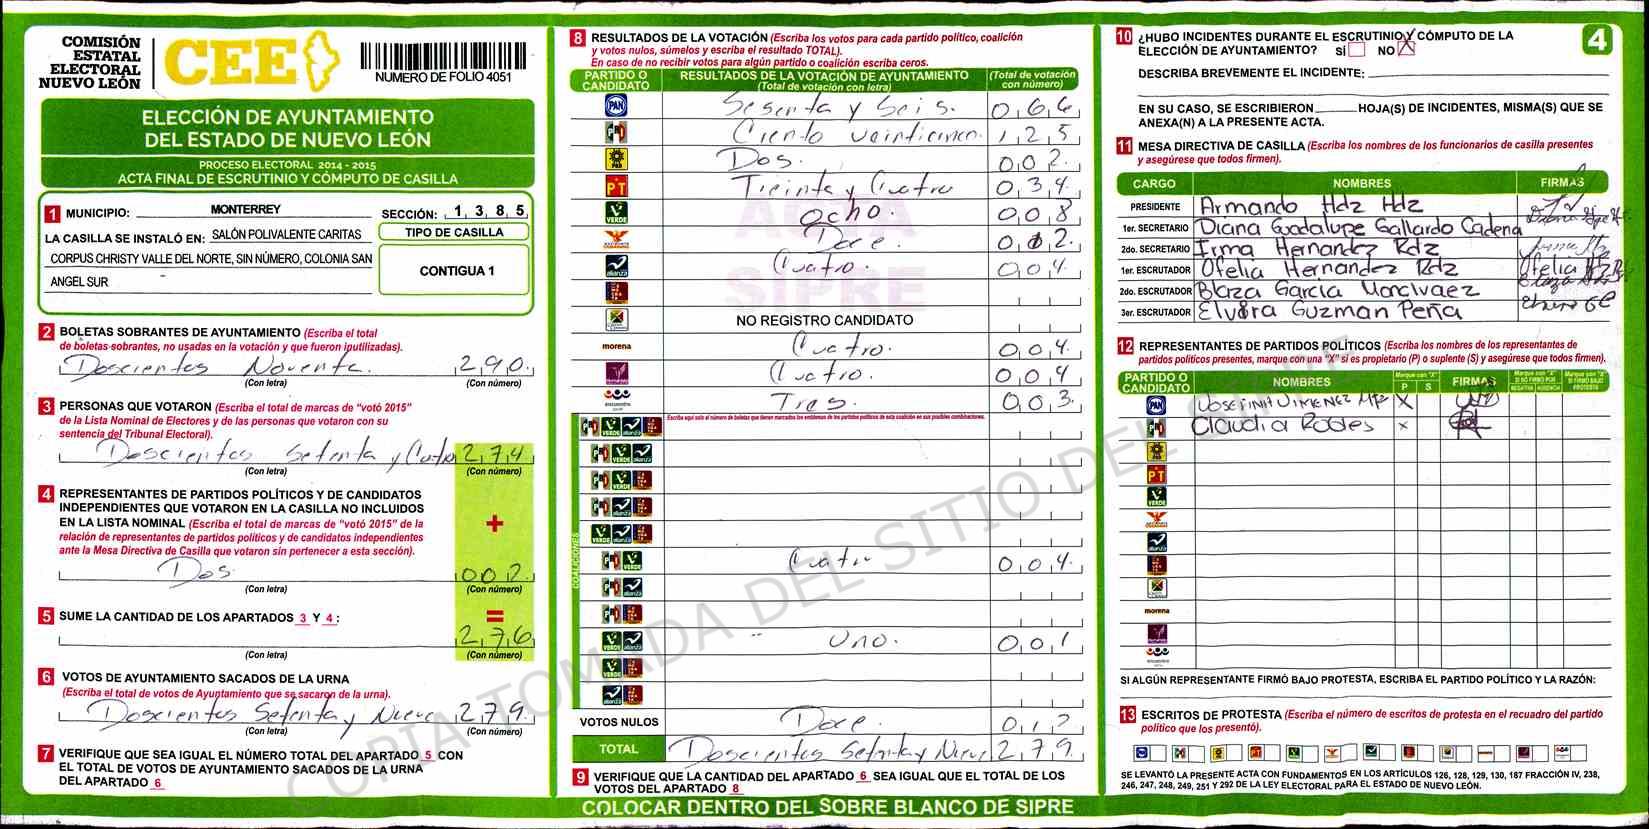 COMISIÓN
ESTATAL
ELECTORAL
NUEVO LEÓN
CEE
NUMERO DE FOLIO 4051
ELECCIÓN DE AYUNTAMIENTO
DEL ESTADO DE NUEVO LEÓN
PROCESO ELECTORAL 2014 - 2015
ACTA FINAL DE ESCRUTINIO Y CÓMPUTO DE CASILLA
1 MUNICIPIO: MONTERREY SECCIÓN: 1 3 8 5
LA CASILLA SE INSTALÓ EN: SALÓN POLIVALENTE CARITAS
CORPUS CHRISTY VALLE DEL NORTE, SIN NÚMERO, COLONIA SAN
ANGEL SUR
TIPO DE CASILLA
CONTIGUA 1
2 BOLETAS SOBRANTES DE AYUNTAMIENTO (Escriba el total
de boletas sobrantes, no usadas en la votación y que fueron inutilizadas).
Doscientos Noventa. 2 9 0
(Con letra) (Con número)
3 PERSONAS QUE VOTARON (Escriba el total de marcas de "votó 2015"
de la Lista Nominal de Electores y de las personas que votaron con su
sentencia del Tribunal Electoral).
Doscientos Setenta y Cuatro 2 7 4
(Con letra) (Con número)
4 REPRESENTANTES DE PARTIDOS POLÍTICOS Y DE CANDIDATOS
INDEPENDIENTES QUE VOTARON EN LA CASILLA NO INCLUIDOS
EN LA LISTA NOMINAL (Escriba el total de marcas de "votó 2015" de la
relación de representantes de partidos políticos y de candidatos independientes
ante la Mesa Directiva de Casilla que votaron sin pertenecer a esta sección).
+
Dos. 0 0 2
(Con letra) (Con número)
5 SUME LA CANTIDAD DE LOS APARTADOS 3 Y 4 : =
2 7 6
(Con letra) (Con número)
6 VOTOS DE AYUNTAMIENTO SACADOS DE LA URNA
(Escriba el total de votos de Ayuntamiento que se sacaron de la urna).
Doscientos Setenta y Nueve 2 7 9
(Con letra) (Con número)
7 VERIFIQUE QUE SEA IGUAL EL NÚMERO TOTAL DEL APARTADO 5 CON
EL TOTAL DE VOTOS DE AYUNTAMIENTO SACADOS DE LA URNA
DEL APARTADO 6
8 RESULTADOS DE LA VOTACIÓN (Escriba los votos para cada partido político, coalición
y votos nulos, súmelos y escriba el resultado TOTAL).
En caso de no recibir votos para algún partido o coalición escriba ceros.
PARTIDO O CANDIDATO RESULTADOS DE LA VOTACIÓN DE AYUNTAMIENTO (Total de votación con letra) (Total de votación con número)
PAN Sesenta y Seis. 0 6 6
PRI Ciento veinticinco. 1 2 5
PRD Dos. 0 0 2
PT Treinta y Cuatro 0 3 4
VERDE Ocho. 0 0 8
Doce. 0 1 2
alianza Cuatro. 0 0 4
NO REGISTRO CANDIDATO
morena Cuatro. 0 0 4
Cuatro. 0 0 4
encuentro Tres. 0 0 3
Escriba aquí solo el número de boletas que tienen marcados los emblemas de los partidos políticos de esta coalición en sus posibles combinaciones.
COALICIONES
PRI VERDE alianza
PRI VERDE alianza
PRI VERDE
PRI alianza
VERDE alianza
PRI VERDE Cuatro 0 0 4
PRI alianza
PRI
VERDE alianza Uno. 0 0 1
VERDE
alianza
VOTOS NULOS Doce. 0 1 2
TOTAL Doscientos Setenta y Nueve 2 7 9
9 VERIFIQUE QUE LA CANTIDAD DEL APARTADO 6 SEA IGUAL QUE EL TOTAL DE LOS
VOTOS DEL APARTADO 8
COLOCAR DENTRO DEL SOBRE BLANCO DE SIPRE
ACTA
SIPRE
COPIA TOMADA DEL SITIO DEL SIPRE
10 ¿HUBO INCIDENTES DURANTE EL ESCRUTINIO Y CÓMPUTO DE LA
ELECCIÓN DE AYUNTAMIENTO? SÍ NO X
4
DESCRIBA BREVEMENTE EL INCIDENTE:
EN SU CASO, SE ESCRIBIERON HOJA(S) DE INCIDENTES, MISMA(S) QUE SE
ANEXA(N) A LA PRESENTE ACTA.
11 MESA DIRECTIVA DE CASILLA (Escriba los nombres de los funcionarios de casilla presentes
y asegúrese que todos firmen).
CARGO NOMBRES FIRMAS
PRESIDENTE Armando Hdz Hdz
1er. SECRETARIO Diana Guadalupe Gallardo Cadena
2do. SECRETARIO Irma Hernandez Rdz
1er. ESCRUTADOR Ofelia Hernandez Rdz
2do. ESCRUTADOR Blaza Garcia
3er. ESCRUTADOR Elvira Guzman Peña
12 REPRESENTANTES DE PARTIDOS POLÍTICOS (Escriba los nombres de los representantes de
partidos políticos presentes, marque con una "X" si es propietario (P) o suplente (S) y asegúrese que todos firmen).
PARTIDO O CANDIDATO NOMBRES Marque con "X" P S FIRMAS Marque con "X" SI NO FIRMÓ POR NEGATIVA AUSENCIA Marque con "X" SI FIRMÓ BAJO PROTESTA
PAN Josefina Jimenez X
PRI Claudia Robles x
PRD
PT
VERDE
alianza
morena
encuentro
SI ALGÚN REPRESENTANTE FIRMÓ BAJO PROTESTA, ESCRIBA EL PARTIDO POLÍTICO Y LA RAZÓN:
13 ESCRITOS DE PROTESTA (Escriba el número de escritos de protesta en el recuadro del partido
político que los presentó).
SE LEVANTÓ LA PRESENTE ACTA CON FUNDAMENTOS EN LOS ARTÍCULOS 126, 128, 129, 130, 187 FRACCIÓN IV, 238,
246, 247, 248, 249, 251 Y 292 DE LA LEY ELECTORAL PARA EL ESTADO DE NUEVO LEÓN.